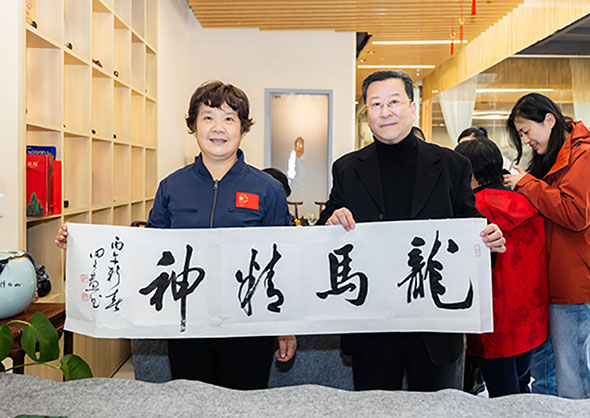 龍馬精神
丙午新春